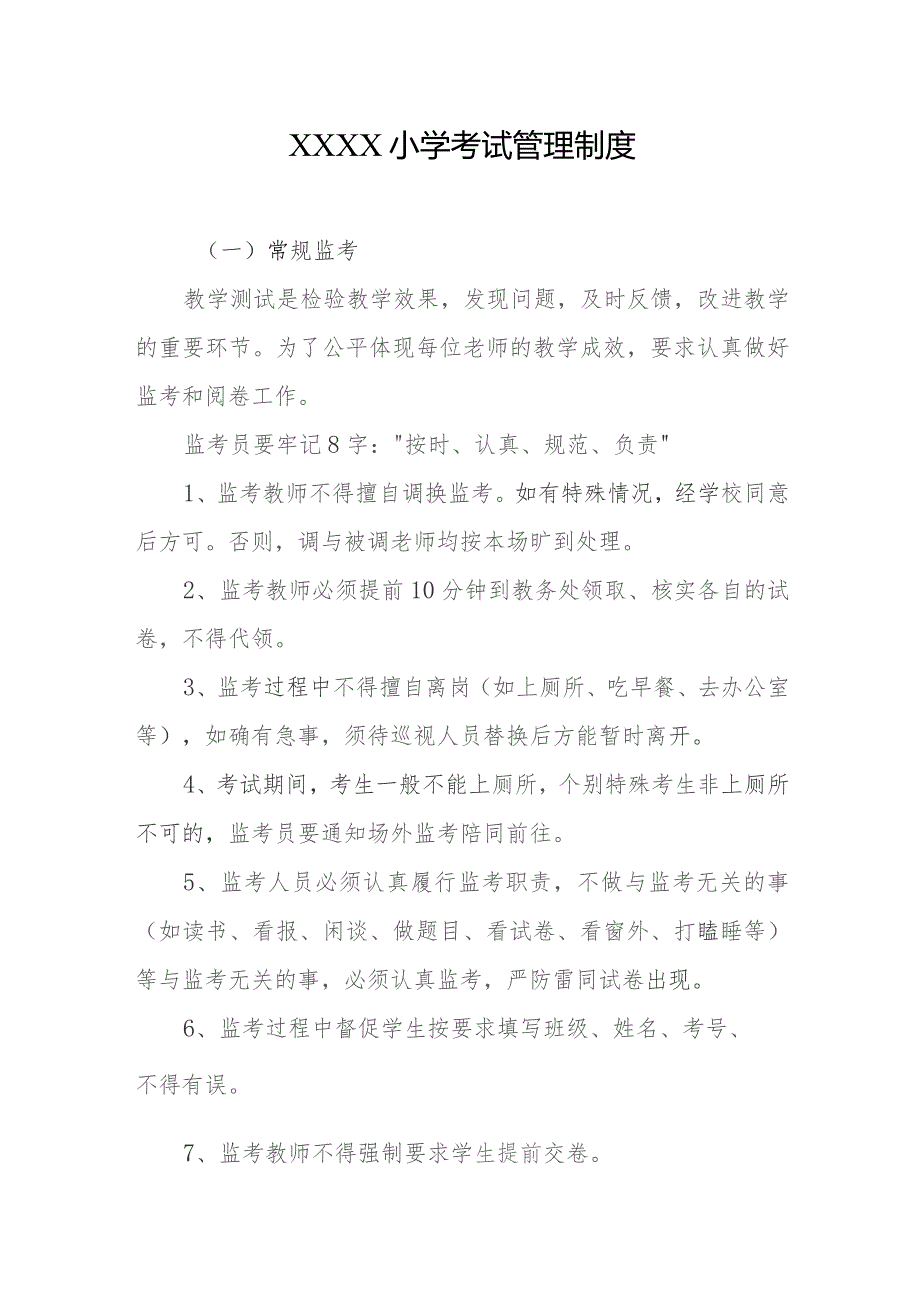 XXXX小学考试管理制度
（一）常规监考
教学测试是检验教学效果，发现问题，及时反馈，改进教学
的重要环节。为了公平体现每位老师的教学成效，要求认真做好
监考和阅卷工作。
监考员要牢记8字："按时、认真、规范、负责"
1、监考教师不得擅自调换监考。如有特殊情况，经学校同意
后方可。否则，调与被调老师均按本场旷到处理。
2、监考教师必须提前10分钟到教务处领取、核实各自的试
卷，不得代领。
3、监考过程中不得擅自离岗（如上厕所、吃早餐、去办公室
等），如确有急事，须待巡视人员替换后方能暂时离开。
4、考试期间，考生一般不能上厕所，个别特殊考生非上厕所
不可的，监考员要通知场外监考陪同前往。
5、监考人员必须认真履行监考职责，不做与监考无关的事
（如读书、看报、闲谈、做题目、看试卷、看窗外、打瞌睡等）
等与监考无关的事，必须认真监考，严防雷同试卷出现。
6、监考过程中督促学生按要求填写班级、姓名、考号、
不得有误。
7、监考教师不得强制要求学生提前交卷。